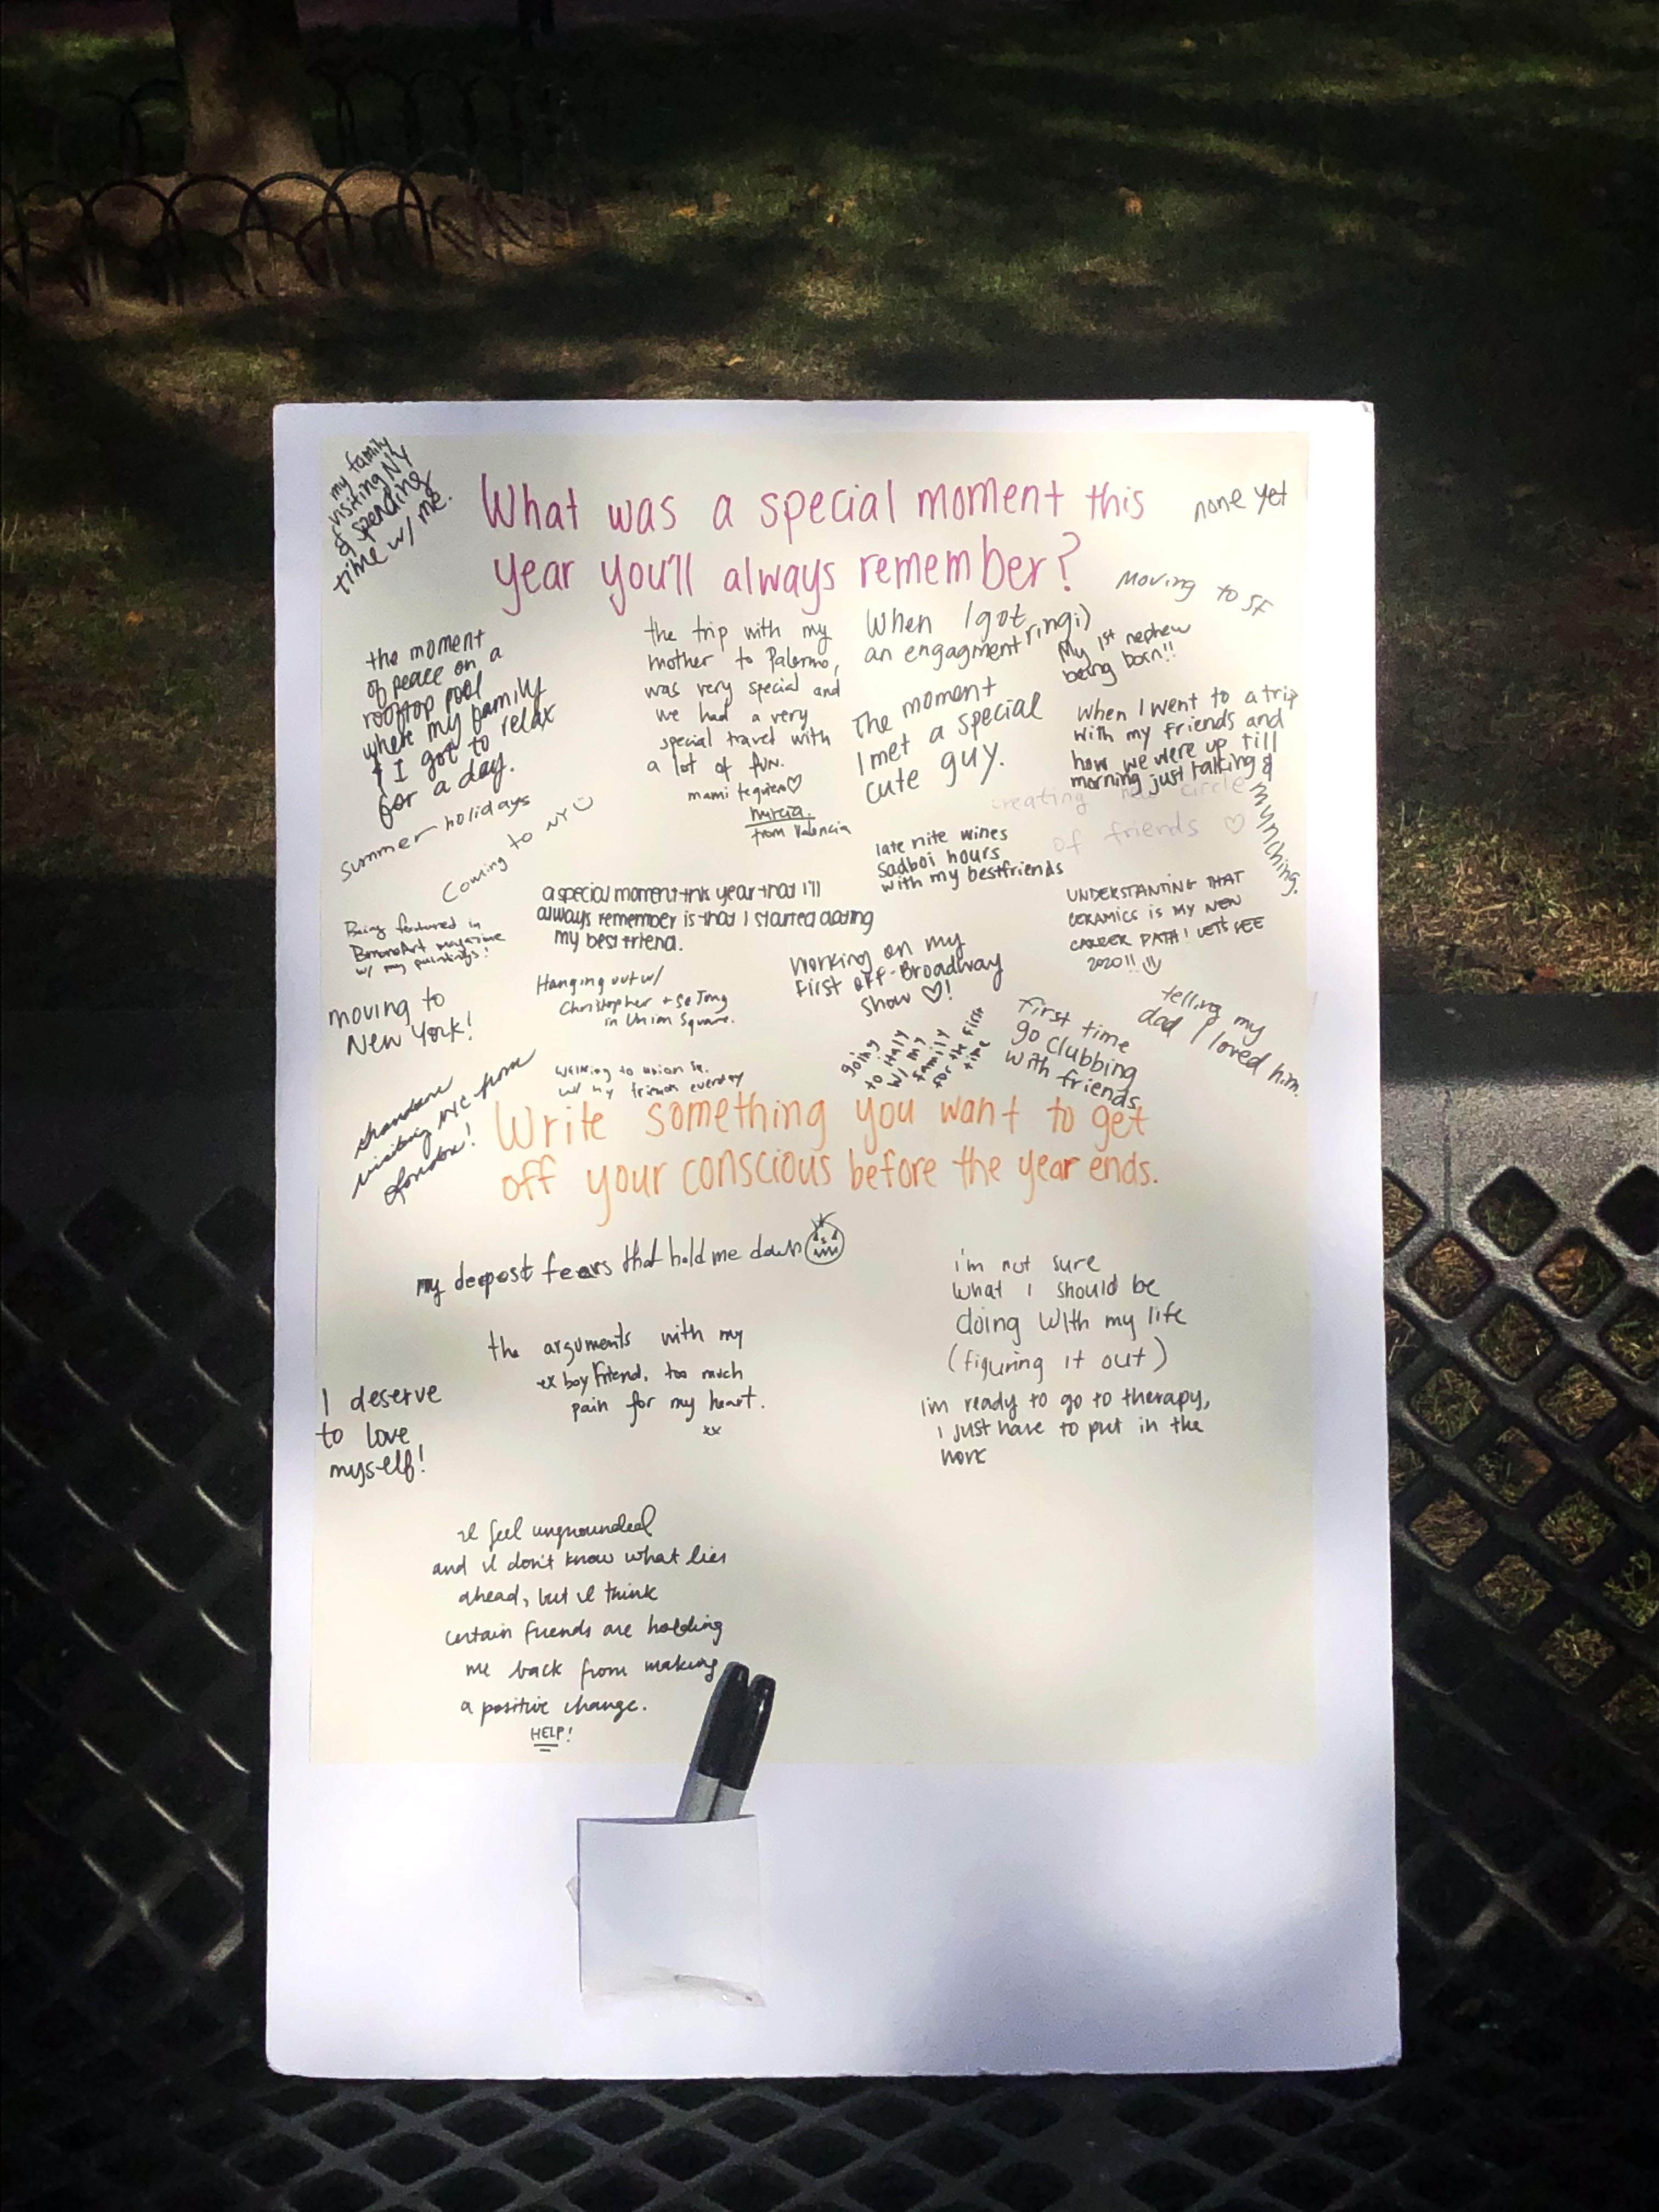 my family
visiting NY
& spending
time w/ me.
What was a special moment this
year you'll always remember?
none yet
Moving to SF
the moment
of peace on a
rooftop pool
where my family
& I got to relax
for a day.
the trip with my
mother to Palermo,
was very special and
we had a very
special travel with
a lot of fun.
mami te quiero
from Valencia
When I got
an engagment ring:)
My 1st nephew
being born!!
The moment
I met a special
cute guy.
When I went to a trip
with my friends and
how we were up till
morning just talking &
munching.
creating new circle
of friends
summer holidays
Coming to NY
late nite wines
Sadboi hours
with my bestfriends
a special moment this year that I'll
always remember is that I started dating
my best friend.
UNDERSTANTING THAT
CERAMICS IS MY NEW
CAREER PATH! LET'S SEE
2020!!
Being featured in
magazine
w/ my paintings!
Working on my
first off-Broadway
show !
Hanging out w/
Christopher + Se Jong
in Union Square.
moving to
New York!
telling my
dad I loved him.
first time
go clubbing
with friends
going
to Italy
w/ my
family
for the first
time
walking to union sq.
w/ my friends everyday
visiting NYC from
London!
Write something you want to get
off your conscious before the year ends.
my deepost fears that hold me down
i'm not sure
what i should be
doing with my life
(figuring it out)
the arguments with my
ex boyfriend, too much
pain for my heart.
xx
I deserve
to love
myself!
i'm ready to go to therapy,
i just have to put in the
work
I feel ungrounded
and I don't know what lies
ahead, but I think
certain friends are holding
me back from making
a positive change.
HELP!